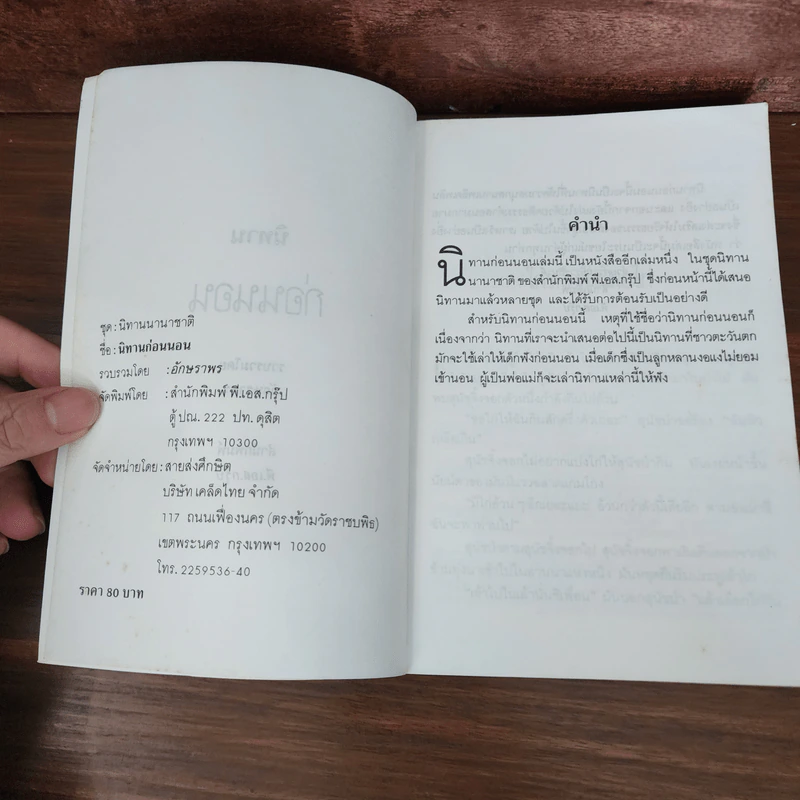 ชุด : นิทานนานาชาติ
ชื่อ : นิทานก่อนนอน
รวบรวมโดย : อักษราพร
จัดพิมพ์โดย : สำนักพิมพ์ พี.เอส.กรุ๊ป
ตู้ ปณ. 222 ปท. ดุสิต
กรุงเทพฯ 10300
จัดจำหน่ายโดย : สายส่งศึกษิต
บริษัท เคล็ดไทย จำกัด
117 ถนนเฟื่องนคร (ตรงข้ามวัดราชบพิธ)
เขตพระนคร กรุงเทพฯ 10200
โทร. 2259536-40
ราคา 80 บาท
คำนำ
นิทานก่อนนอนเล่มนี้ เป็นหนังสืออีกเล่มหนึ่ง ในชุดนิทาน
นานาชาติ ของสำนักพิมพ์ พี.เอส.กรุ๊ป ซึ่งก่อนหน้านี้ได้เสนอ
นิทานมาแล้วหลายชุด และได้รับการต้อนรับเป็นอย่างดี
สำหรับนิทานก่อนนอนนี้ เหตุที่ใช้ชื่อว่านิทานก่อนนอนก็
เนื่องจากว่า นิทานที่เราจะนำเสนอต่อไปนี้เป็นนิทานที่ชาวตะวันตก
มักจะใช้เล่าให้เด็กฟังก่อนนอน เมื่อเด็กซึ่งเป็นลูกหลานงอแงไม่ยอม
เข้านอน ผู้เป็นพ่อแม่ก็จะเล่านิทานเหล่านี้ให้ฟัง